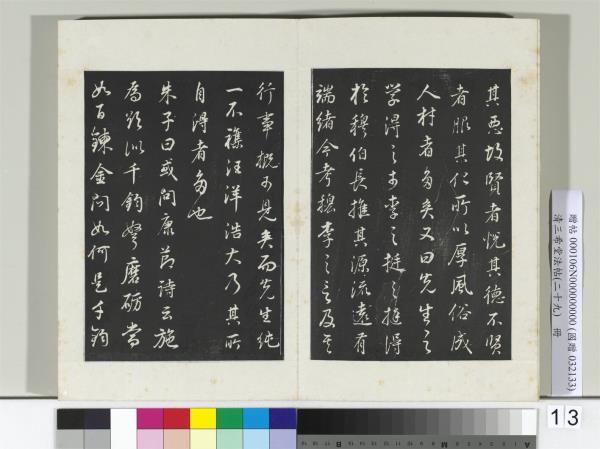 其惡故賢者悅其德不賢
者服其化所以厚風俗成
人材者多矣又曰先生之
学得之於李之挺之挺得
於穆伯長推其源流遠有
端緒今考穆李之言及其
行事概可見矣而先生純
一不襍汪洋浩大乃其所
自得者多也
朱子曰或問康節詩云施
為欲似千鈞弩磨砺當
如百鍊金問如何是千鈞
贈帖 000106N000000000 (國贈 032133)
清三希堂法帖(二十九) 冊
13